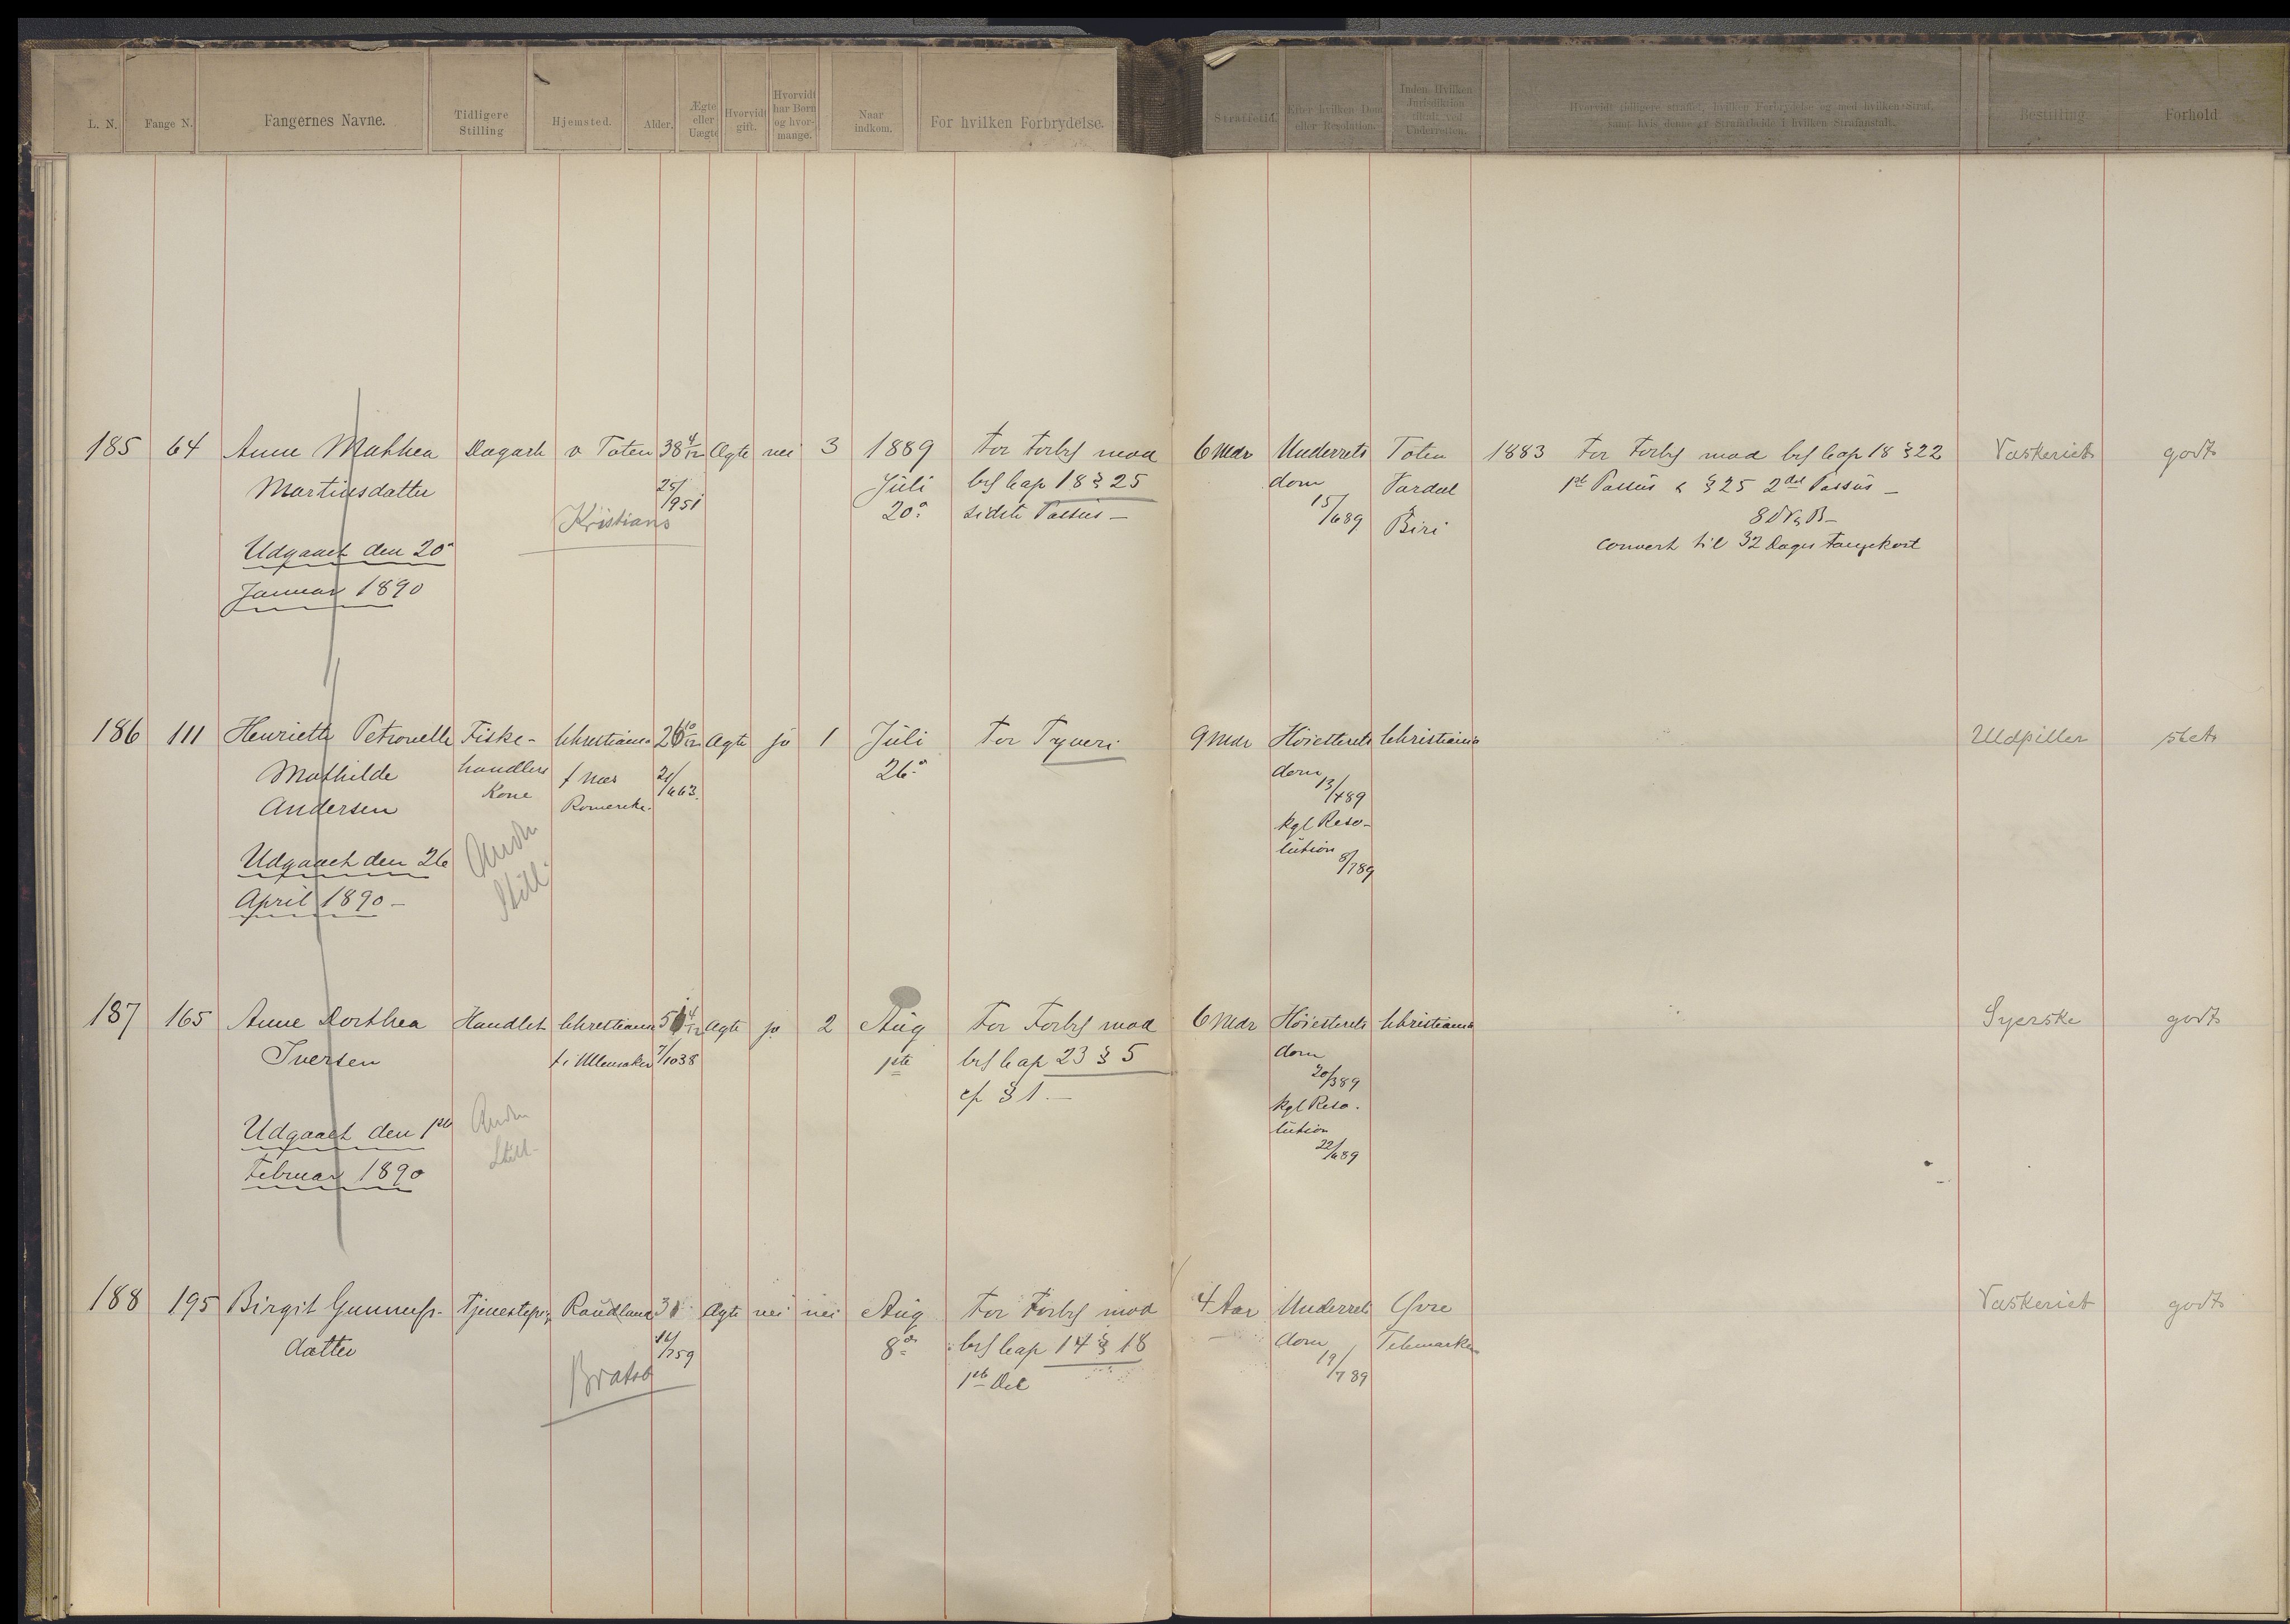 L. N.
Fange N.
Fangernes Navne.
Tidligere
Stilling
Hjemsted.
Alder.
Ægte
eller
Uægte
Hvorvidt
gift.
Hvorvidt
har Børn
og hvor-
mange.
Naar
indkom.
For hvilken Forbrydelse.
Straffetid.
Efter hvilken Dom
eller Resolution.
Inden Hvilken
Jurisdiktion
tiltalt ved
Underretten.
Hvorvidt tidligere straffet, hvilken Forbrydelse og med hvilken Straf,
samt hvis denne er Strafarbeide i hvilken Strafanstalt.
Bestilling
Forhold
185 64 Anne Mathea Dagarb v Toten 38 4/12 Ægte nei 3 1889 For Forbr mod 6 Mdr Underrets Toten 1883 For Forbr mod brl Cap 18 § 22 Vaskeriet godt
Martinsdatter 25/951 Juli brl Cap 18 § 25 dom Vardal 1ste Passus & § 25 2det Passus –
Kristians 20de sidste Passus – 15/689 & Biri 8 D V & B –
Udgaaet den 20de convert til 32 Dages Fangekost
Januar 1890
186 111 Henriette Petronelle Fiske- Christiania 26 10/12 Ægte ja 1 Juli For Tyveri 9 Mdr Høiesterets Christiania Udpiller slet
Mathilde handlers f Næs 21/663. 26de dom
Andersen Kone Romerike. 13/489
kgl Reso-
Udgaaet den 26 Andr lution
April 1890 – Still 8/789
187 165 Anne Dorthea Handlet Christiania 51 4/12 Ægte ja 2 Aug For Forbr mod 6 Mdr Høiesterets Christiania Syerske godt
Iversen f i Ullensaker 7/1038 1ste brl Cap 23 § 5 dom
cf § 1. – 20/389
kgl Reso.
Udgaaet den 1ste Andr lution
Februar 1890 Still 22/689
188 195 Birgit Gunnufs- Tjenestepig Raudland 30 Ægte nei nei Aug For Forbr mod 4 Aar Underrets Øvre Vaskeriet godt
datter 16/759 8de brl Cap 14 § 18 dom Telemarken
Bratsb 1ste Del 19/789